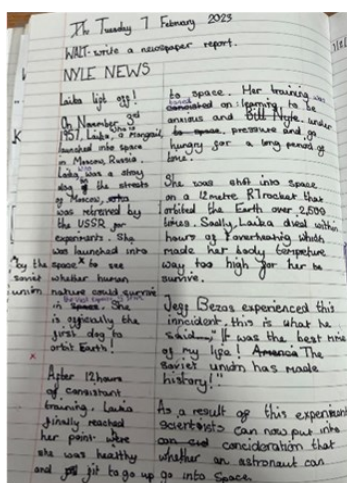 Tuesday 7 February 2023
WALT- write a newspaper report.
NYLE NEWS
Laika lift off!
On November 3rd
1957, Laika, a Mongrail,
launched into space
in Moscow, Russia.
Laika was a stray
dog of the streets
of Moscow,
was retreived by
the USSR for
experiments. She
was launched into
by the space to see
soviet whether human
union nature could survive
in space. She
is officially the
first dog to
orbit Earth!
After 12 hours
of consistant
training, Laika
finally reached
her point were
she was healthy
and fit to go up
to space. Her training was
based on learning to be
anxious and under
pressure and go
hungry for a long period of
time.
She was shot into space
on a 12 metre R7 rocket that
orbited the Earth over 2,500
times. Sadly, Laika died within
hours of overheating which
made her body tempreture
way too high for her be
survive.
Jeff Bezos experienced this
innicident, this is what he
said, "It was the best time
of my life! The
soviet union has made
history!"
As a result of this experiment
scientists can now put into
concideration that
whether an astronaut can
go into Space.